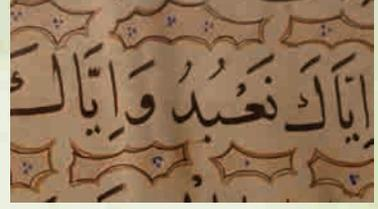 اِيَّاكَ نَعْبُدُ وَاِيَّاكَ